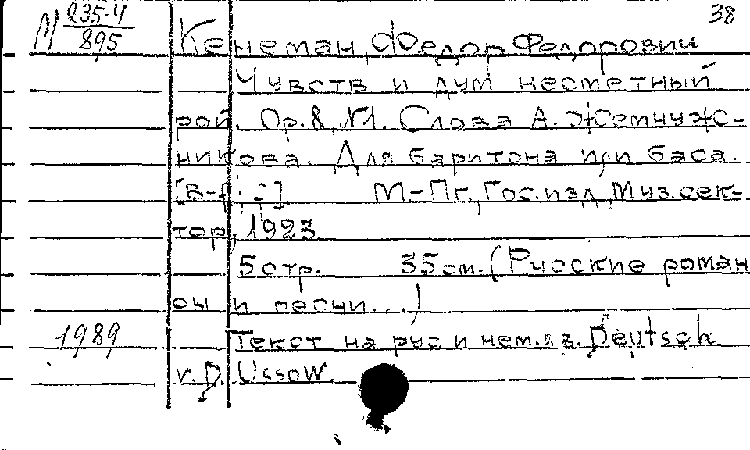 38
М 235-4
895
Кенеман, Федор Федорович
Чувств и дум несметный
рой. Ор. 8, №1. Слова А. Жемчуж-
никова. Для баритона или баса.
М-Пг., Гос. изд., Муз. сек-
тор, 1923
5 стр. 35 см. (Русские роман
сы и песни...)
1989
Текст на рус и нем. яз. Deutsch
v. D. Ussow.